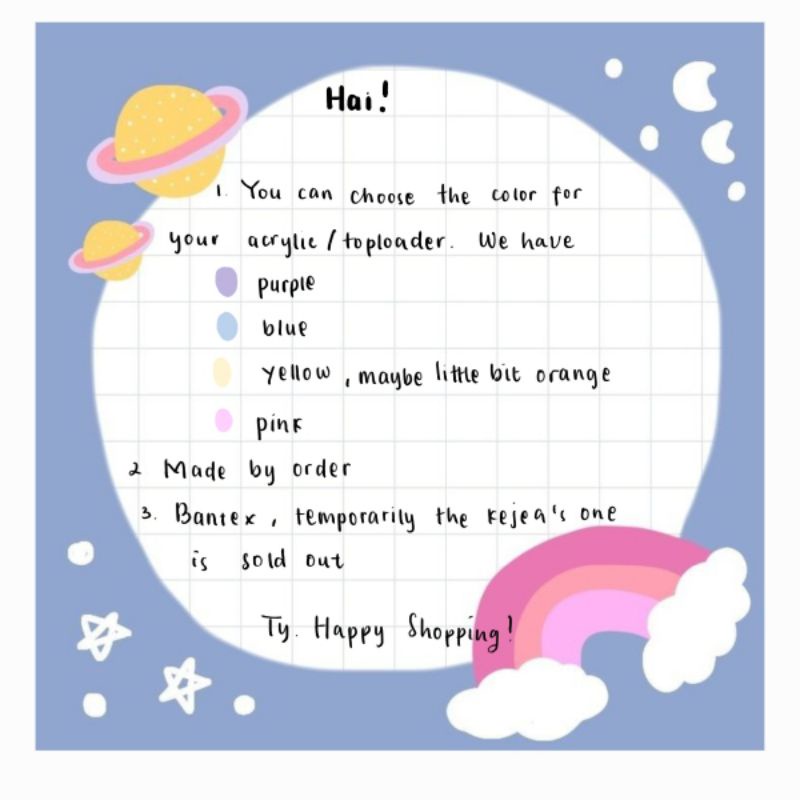 Hai!
1. You can choose the color for
your acrylic/toploader. We have
purple
blue
yellow, maybe little bit orange
pink
2 Made by order
3. Bantex, temporarily the kejea's one
is sold out
Ty. Happy Shopping!